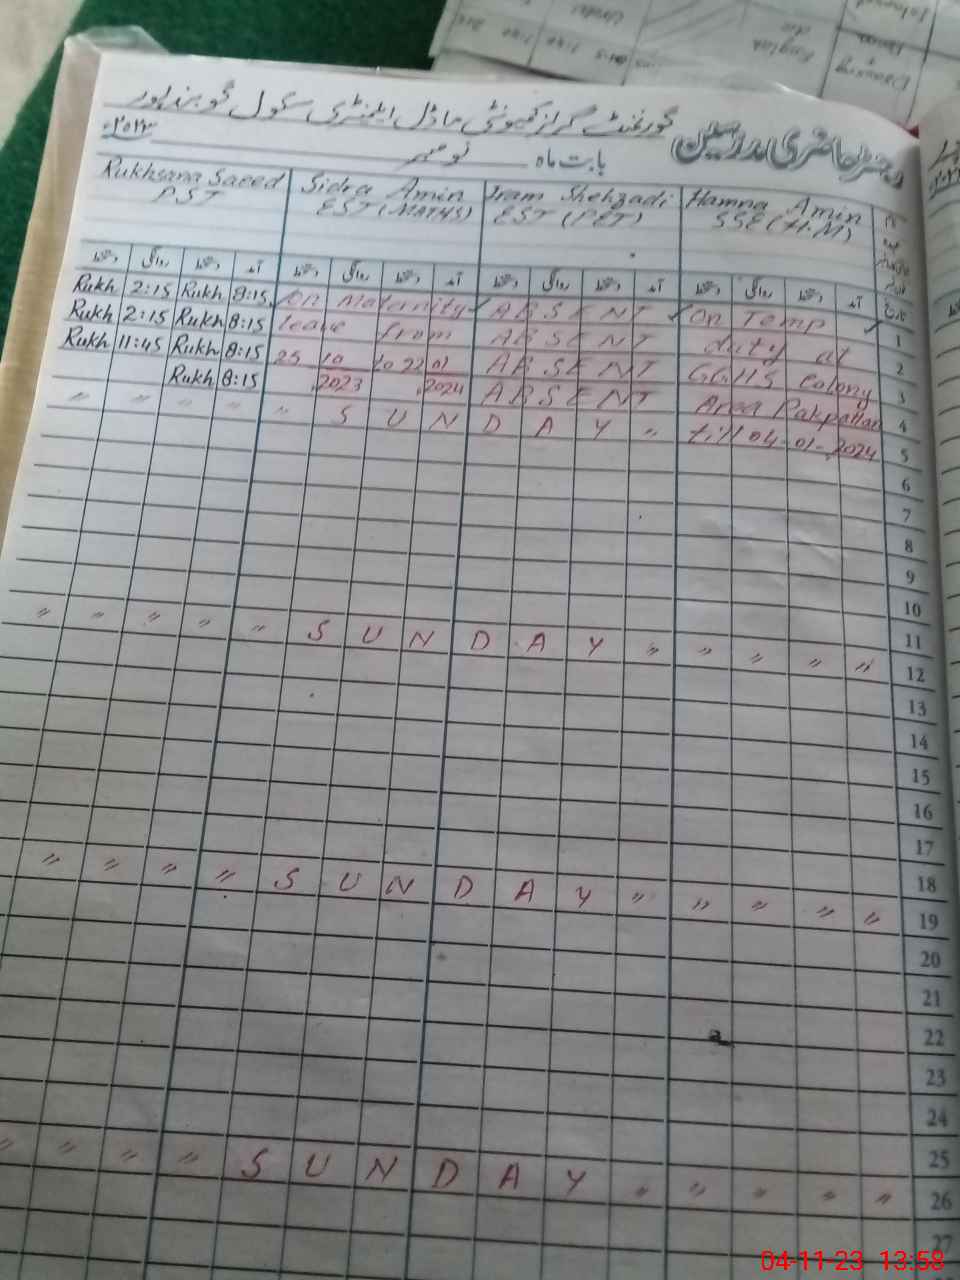 رجسٹر حاضری مدرسین گورنمنٹ گرلز کمیونٹی ماڈل ایلیمنٹری سکول گوبند پور
بابت ماہ نومبر ۲۰۲۳ء
Rukhsana Saeed Sidra Amin Iram Shehzadi Hamna Amin
PST EST (MATHS) EST (PET) SSE (H.M)
دستخط روانگی دستخط آمد دستخط روانگی دستخط آمد دستخط روانگی دستخط آمد دستخط روانگی دستخط آمد تاریخ
Rukh 2:15 Rukh 8:15 On Maternity ABSENT On Temp 1
Rukh 2:15 Rukh 8:15 leave from ABSENT duty at 2
Rukh 11:45 Rukh 8:15 25 10 to 22 01 ABSENT GGHS colony 3
Rukh 8:15 2023 2024 ABSENT Area Pakpattan 4
" " " " " S U N D A Y " till 04-01-2024 5
6
7
8
9
10
11
" " " " " S U N D A Y " " " " " 12
13
14
15
16
17
18
" " " " S U N D A Y " " " " " 19
20
21
22
23
24
25
" " " " S U N D A Y " " " " " 26
27
Drawing
English
Urdu
04-11-23 13:58